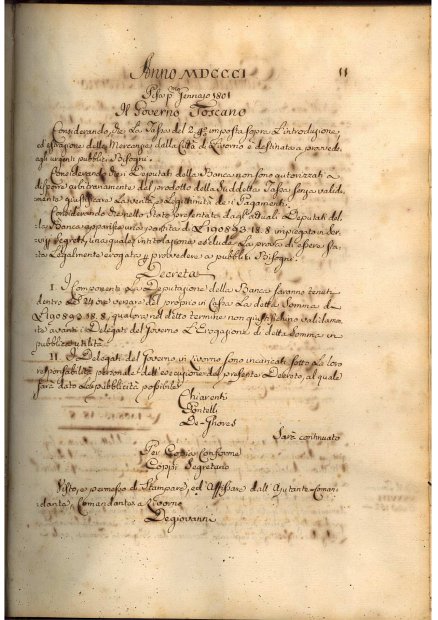 Anno MDCCCI 11
Pisa pmo Gennajo 1801
Il Governo Toscano
Considerando, che La Tassa del 2. p imposta sopra L'introduzione,
ed estrazione delle Mercanzie dalla Città di Livorno è destinata a provvedere
agli urgenti pubblici Bisogni.
Considerando che i Deputati della Banca non sono autorizzati a
disporre arbitrariamente del prodotto della Suddetta Tassa senza valida-
mente giustificare La verità, e Legittimità de i Pagamenti.
Considerando che nello Stato presentato dagl'attuali Deputati del-
la Banca apparisce una partita di L 190893.18.8 impiegata in Ser-
vizj segreti, una qual'intitolazione esclude La prova di essere sta-
ta Legalmente erogata per provvedere a pubblici Bisogni.
Decreta
I. I Componenti La Deputazione della Banca saranno tenuti
dentro Le 24 ore versare del proprio in Cassa La detta Somma di
L 190893.18.8, qualora nel ditto termine non giustifichino validamen-
te avanti i Delegati del Governo L'Erogazione di detta Somma in
pubblica utilità.
II. I Delegati del Governo in Livorno sono incaricati sotto La loro
responsabilità personale dell'esecuzione del presente Decreto, al quale
sarà dato La pubblicità possibile
Chiarenti
Pontelli
De-Ghores
Sarà continuato
Per Copia Conforme
Coppi Segretario
Visto, e permesso di Stampare, ed'Affissare dall'Ajutante Coman-
dante Comandante a Livorno
Degiovanni